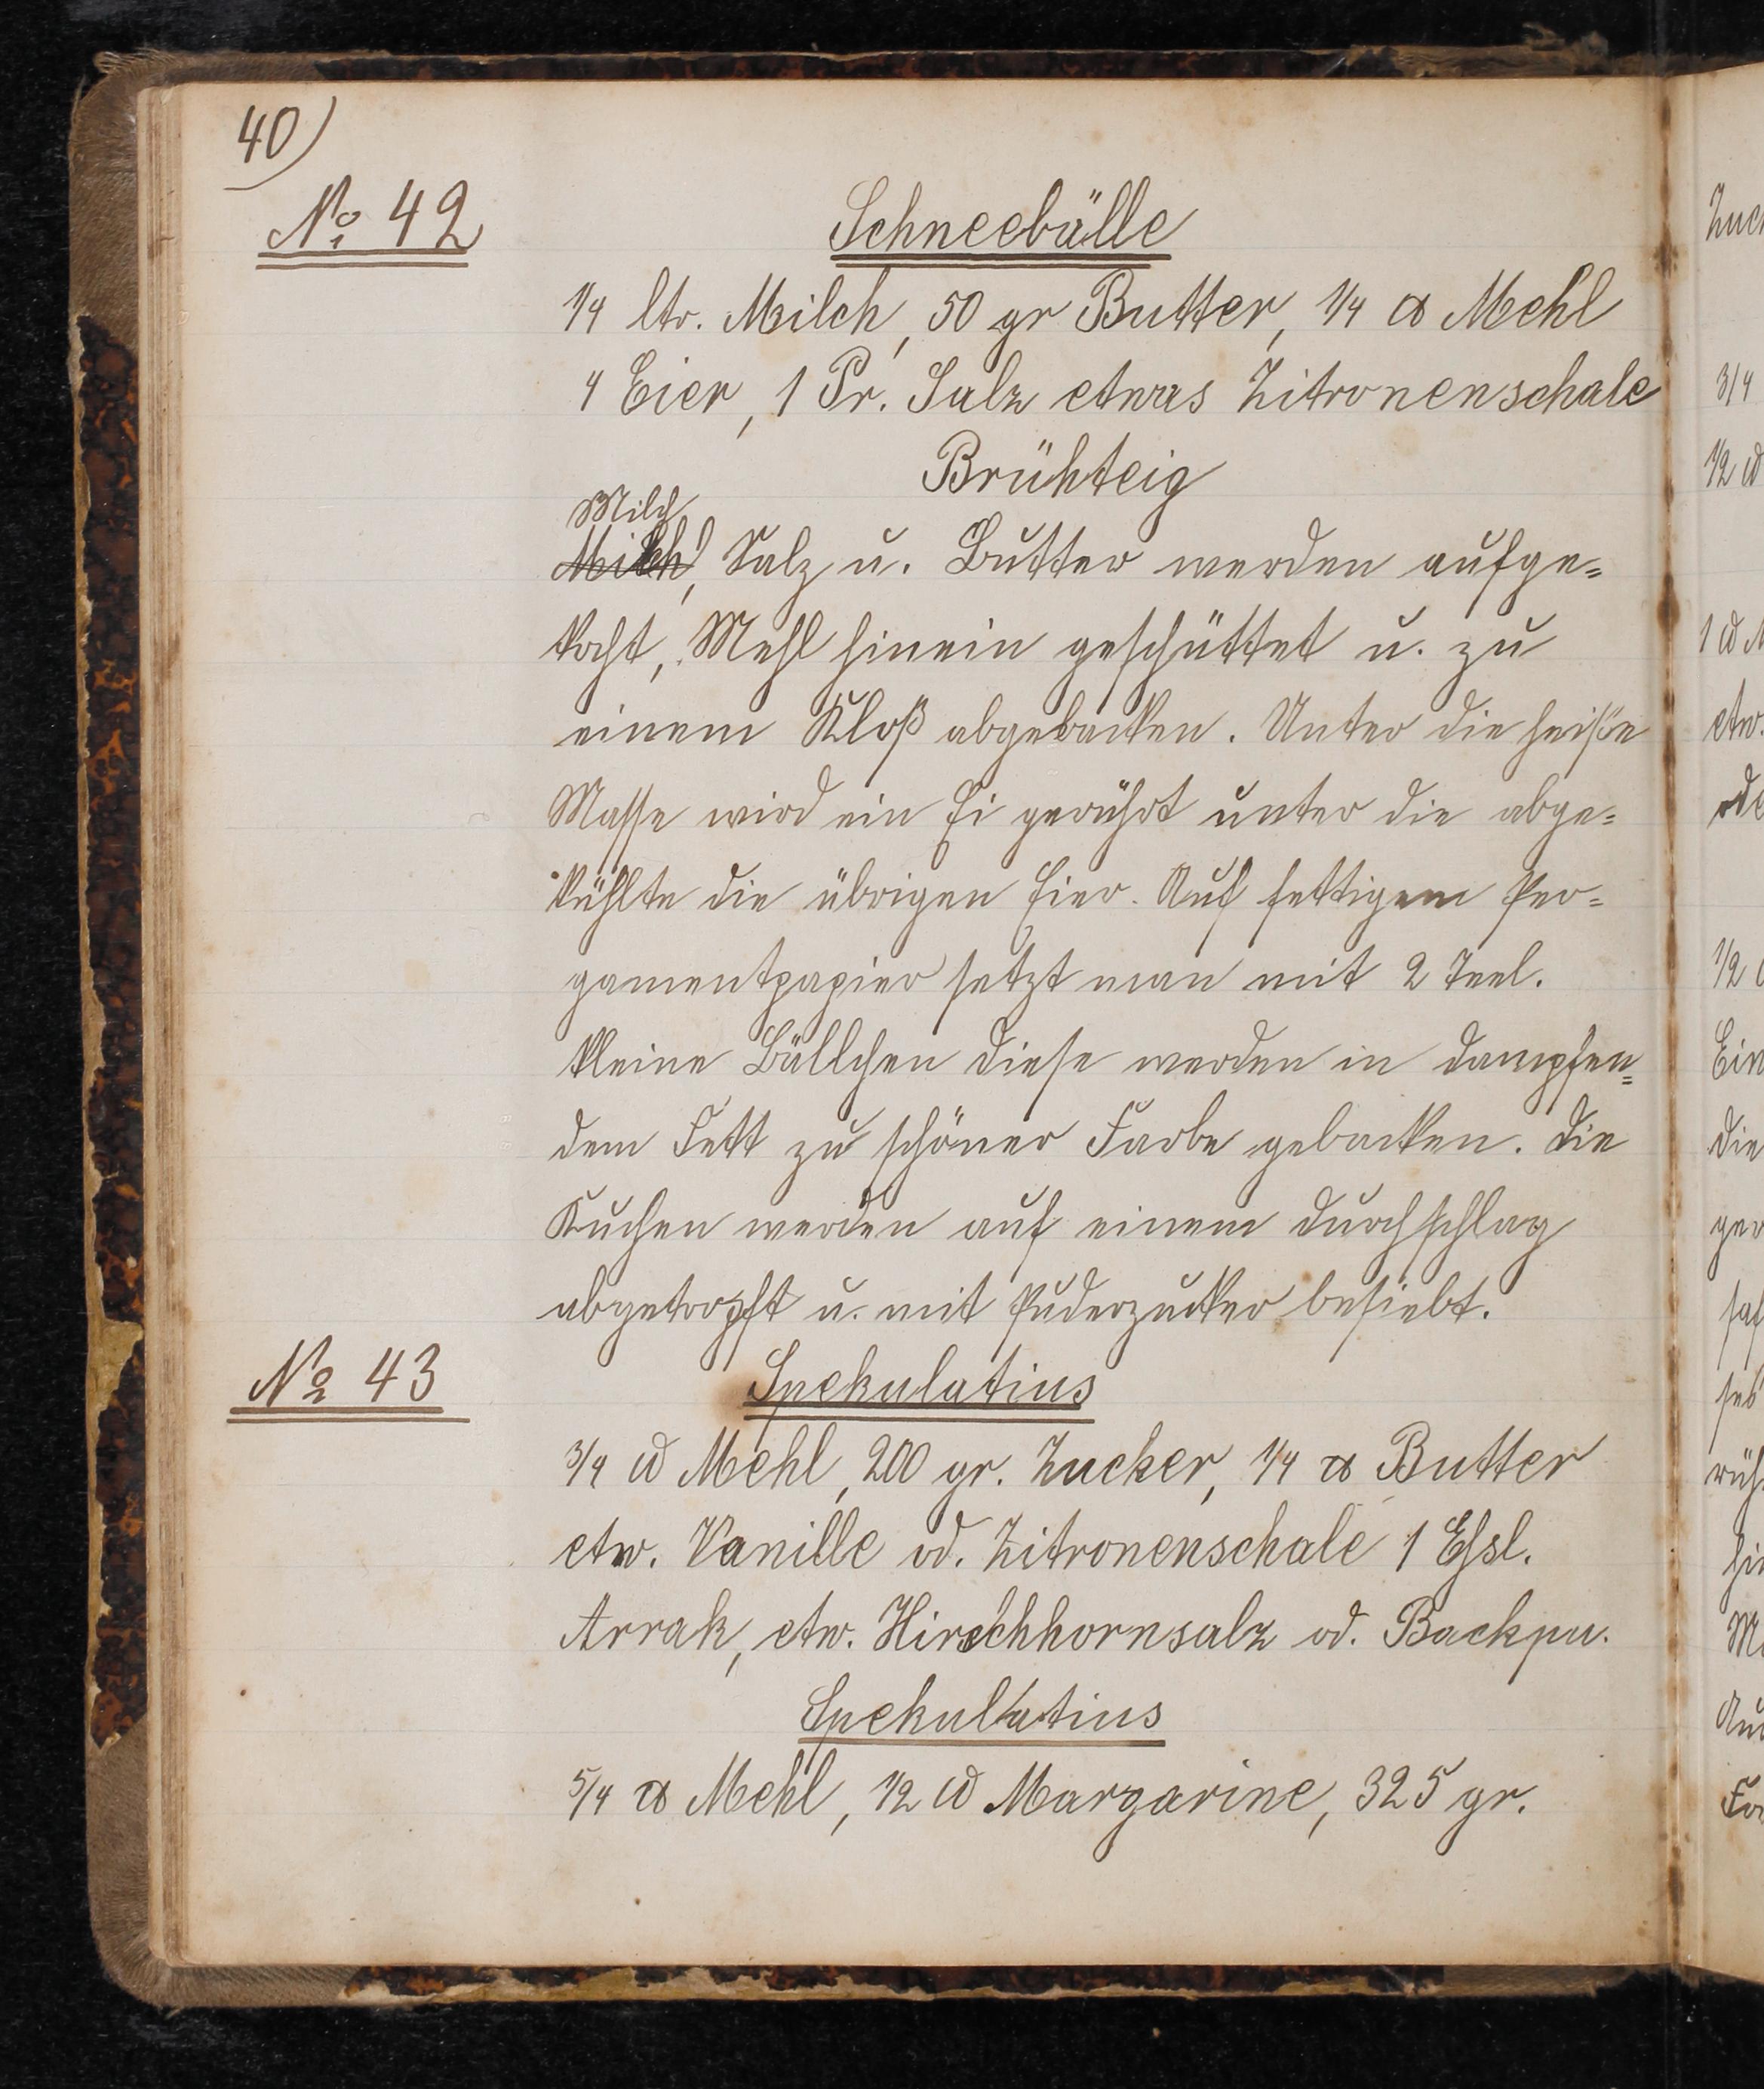 40)
No 42 Schneebälle
1/4 ltr. Milch, 50 gr Butter, 1/4 ℔ Mehl
4 Eier, 1 Pr. Salz etwas Zitronenschale
Brühteig
Milch
Milch, Salz u. Butter werden aufge=
kocht, Mehl hinein geschüttet u. zu
einem Kloß abgebacken. Unter die heiße
Masse wird ein Ei gerührt unter die abge=
kühlte die übrigen Eier. Auf fettigem Per=
gamentpapier setzt man mit 2 Teel.
kleine Bällchen diese werden in dampfen=
dem Fett zu schöner Farbe gebacken. Die
Kuchen werden auf einem Durchschlag
abgetropft u. mit Puderzucker besiebt.
No 43 Spekulatius
3/4 ℔ Mehl, 200 gr. Zucker, 1/4 ℔ Butter
etw. Vanille od. Zitronenschale 1 Eßl.
Arrak, etw. Hirschhornsalz od. Backpu.
Spekullatius
5/4 ℔ Mehl, 1/2 ℔ Margarine, 325 gr.